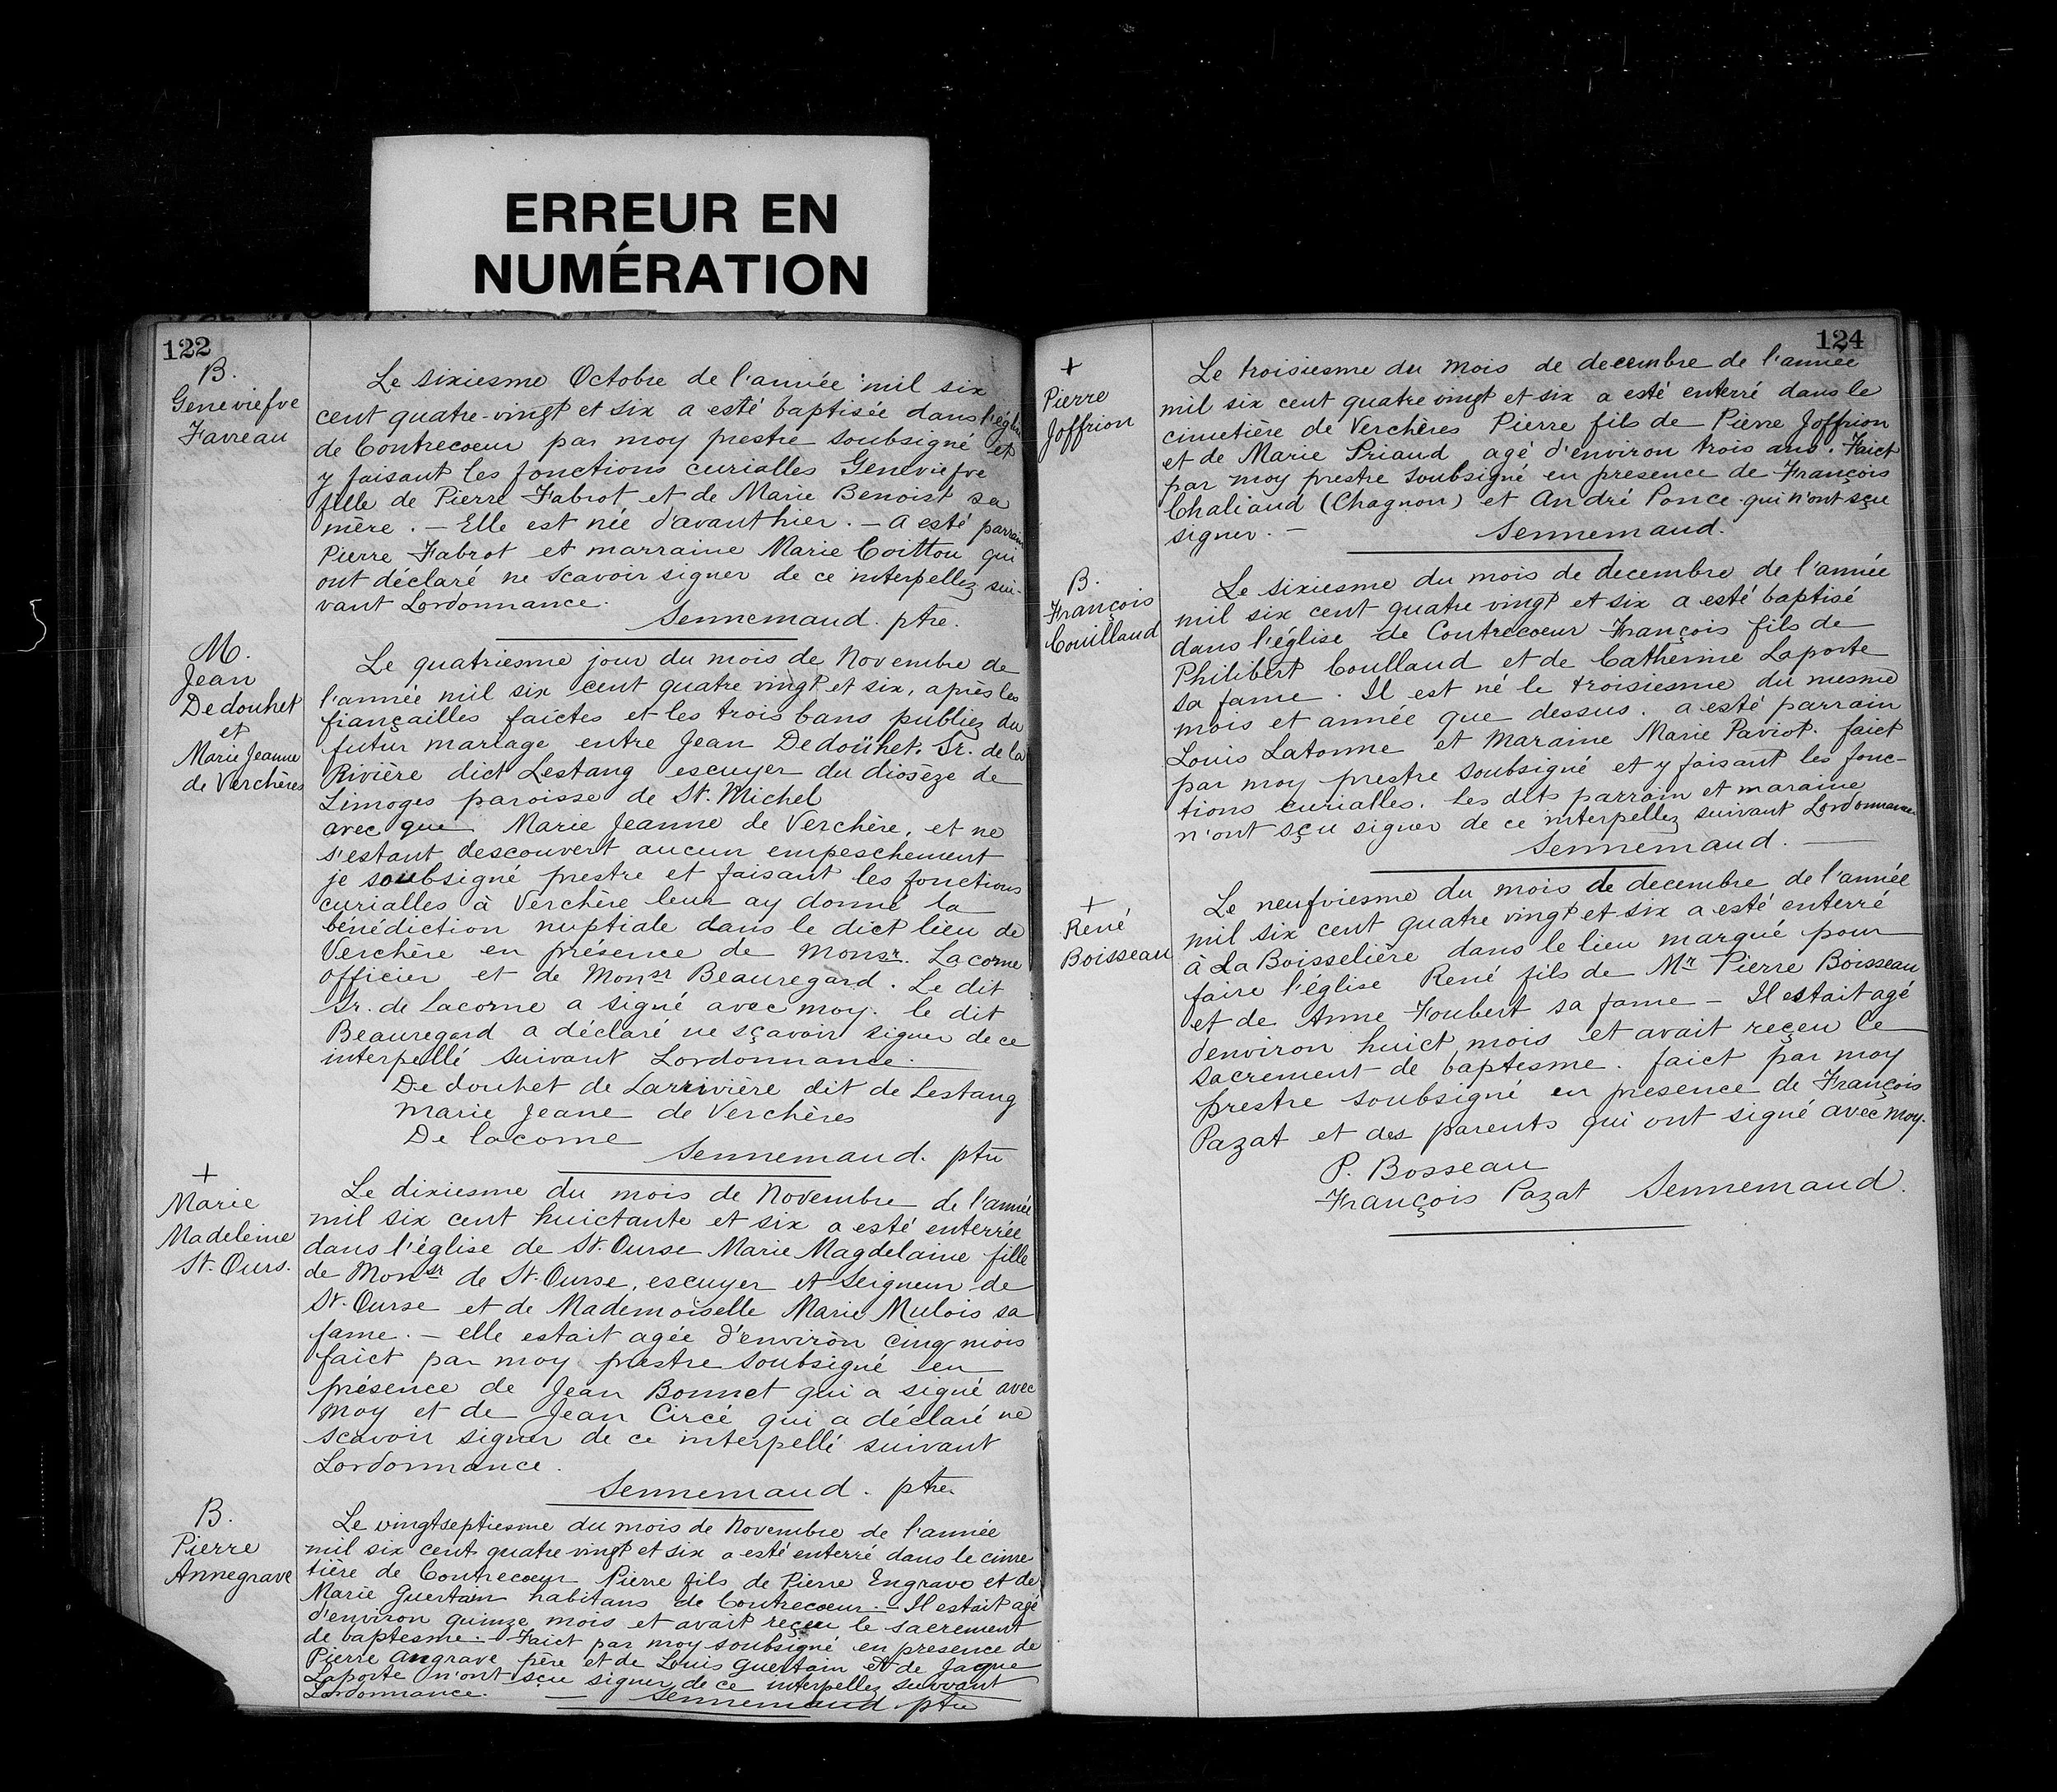 ERREUR EN
NUMÉRATION
122
B.
Geneviefve
Favreau
Le sixiesme Octobre de l'année mil six
cent quatre-vingt et six a esté baptisée dans l'églis
de Contrecoeur par moy prestre soubsigné et
y faisant les fonctions curialles Geneviefve
fille de Pierre Fabrot et de Marie Benoist sa
mère. — Elle est née d'avanthier. — a esté parrain
Pierre Fabrot et marraine Marie Coitton qui
ont déclaré ne scavoir signer de ce interpellez sui-
vant Lordonnance.
Sennemaud. ptre.
M.
Jean
Dedouhet
et
Marie Jeanne
de Verchères
Le quatriesme jour du mois de Novembre de
l'année mil six cent quatre vingt et six, après les
fiançailles faictes et les trois bans publiez du
futur mariage entre Jean Dedoühet. Sr. de la
Rivière dict Lestang escuyer du diosèze de
Limoges paroisse de St. Michel
avec que Marie Jeanne de Verchère, et ne
s'estant descouvert aucun empeschement
je soubsigné prestre et faisant les fonctions
curialles à Verchère leur ay donné la
bénédiction nuptiale dans le dict lieu de
Verchère en présence de Monsr. Lacorne
officier et de Monsr Beauregard. Le dit
Sr. de Lacorne a signé avec moy. le dit
Beauregard a déclaré ne sçavoir signer de ce
interpellé suivant Lordonnance.
De douhet de Larrivière dit de Lestang
Marie Jeane de Verchères
De lacorne
Sennemaud. ptre
+
Marie
Madeleine
St. Ours.
Le dixiesme du mois de Novembre de l'année
mil six cent huictante et six a esté enterrée
dans l'église de St. Ourse Marie Magdelaine fille
de Monsr de St. Ourse, escuyer et Seigneur de
St. Ourse et de Mademoiselle Marie Mulois sa
fame. — elle estait agée d'environ cinq mois
faict par moy prestre soubsigné en
présence de Jean Bonnet qui a signé avec
moy et de Jean Circé qui a déclaré ne
scavoir signer de ce interpellé suivant
Lordonnance.
Sennemaud. ptre.
B.
Pierre
Annegrave
Le vingtseptiesme du mois de Novembre de l'année
mil six cent quatre vingt et six a esté enterré dans le cime
tière de Contrecoeur Pierre fils de Pierre Engrave et de
Marie Guertain habitans de Contrecoeur. — Il estait agé
d'environ quinze mois et avait reçeu le sacrement
de baptesme. Faict par moy soubsigné en presence de
Pierre Angrave père et de Louis Guertain et de Jaque
Laporte n'ont sçu signer de ce interpellez suivant
Lordonnance. — Sennemaud ptre
124
+
Pierre
Joffrion
Le troisiesme du mois de decembre de l'année
mil six cent quatre vingt et six a esté enterré dans le
cimetière de Verchères Pierre fils de Pierre Joffrion
et de Marie Priaud agé d'environ trois ans. Faict
par moy prestre soubsigné en presence de François
Chaliand (Chagnon) et André Ponce qui n'ont sçu
signer. —
Sennemaud.
B.
François
Couillaud
Le sixiesme du mois de decembre de l'année
mil six cent quatre vingt et six a esté baptisé
dans l'église de Contrecoeur François fils de
Philibert Coullaud et de Catherine Laporte
sa fame. Il est né le troisiesme du mesme
mois et année que dessus. a esté parrain
Louis Latonne et Maraine Marie Paviot. faict
par moy prestre soubsigné et y faisant les fonc-
tions curialles. les dits parrain et maraine
n'ont sçu signer de ce interpellez suivant Lordonnance
Sennemaud. —
+
René
Boisseau
Le neufviesme du mois de decembre de l'année
mil six cent quatre vingt et six a esté enterré
à La Boisselière dans le lieu marqué pour
faire l'église René fils de Mr Pierre Boisseau
et de Anne Foubert sa fame — Il estait agé
denviron huict mois et avait reçeu le
sacrement de baptesme. faict par moy
prestre soubsigné en presence de François
Pazat et des parents qui ont signé avec moy.
P. Bosseau
François Pazat Sennemaud.